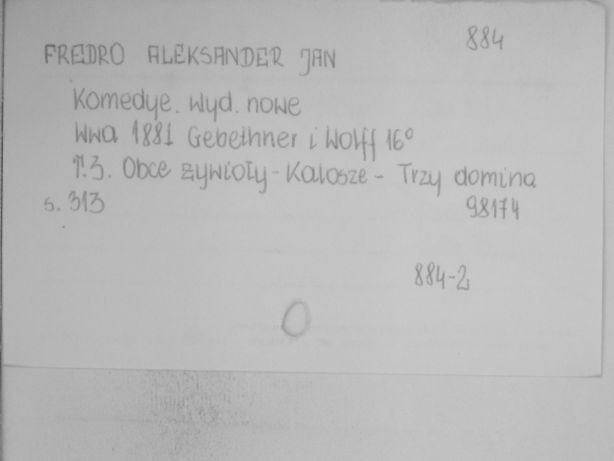 884
FREDRO ALEKSANDER JAN
Komedye. Wyd. nowe
Wwa 1881 Gebethner i Wolff 16°
T.3. Obce żywioły - Kalosze - Trzy domina
s. 313 98174
884-2